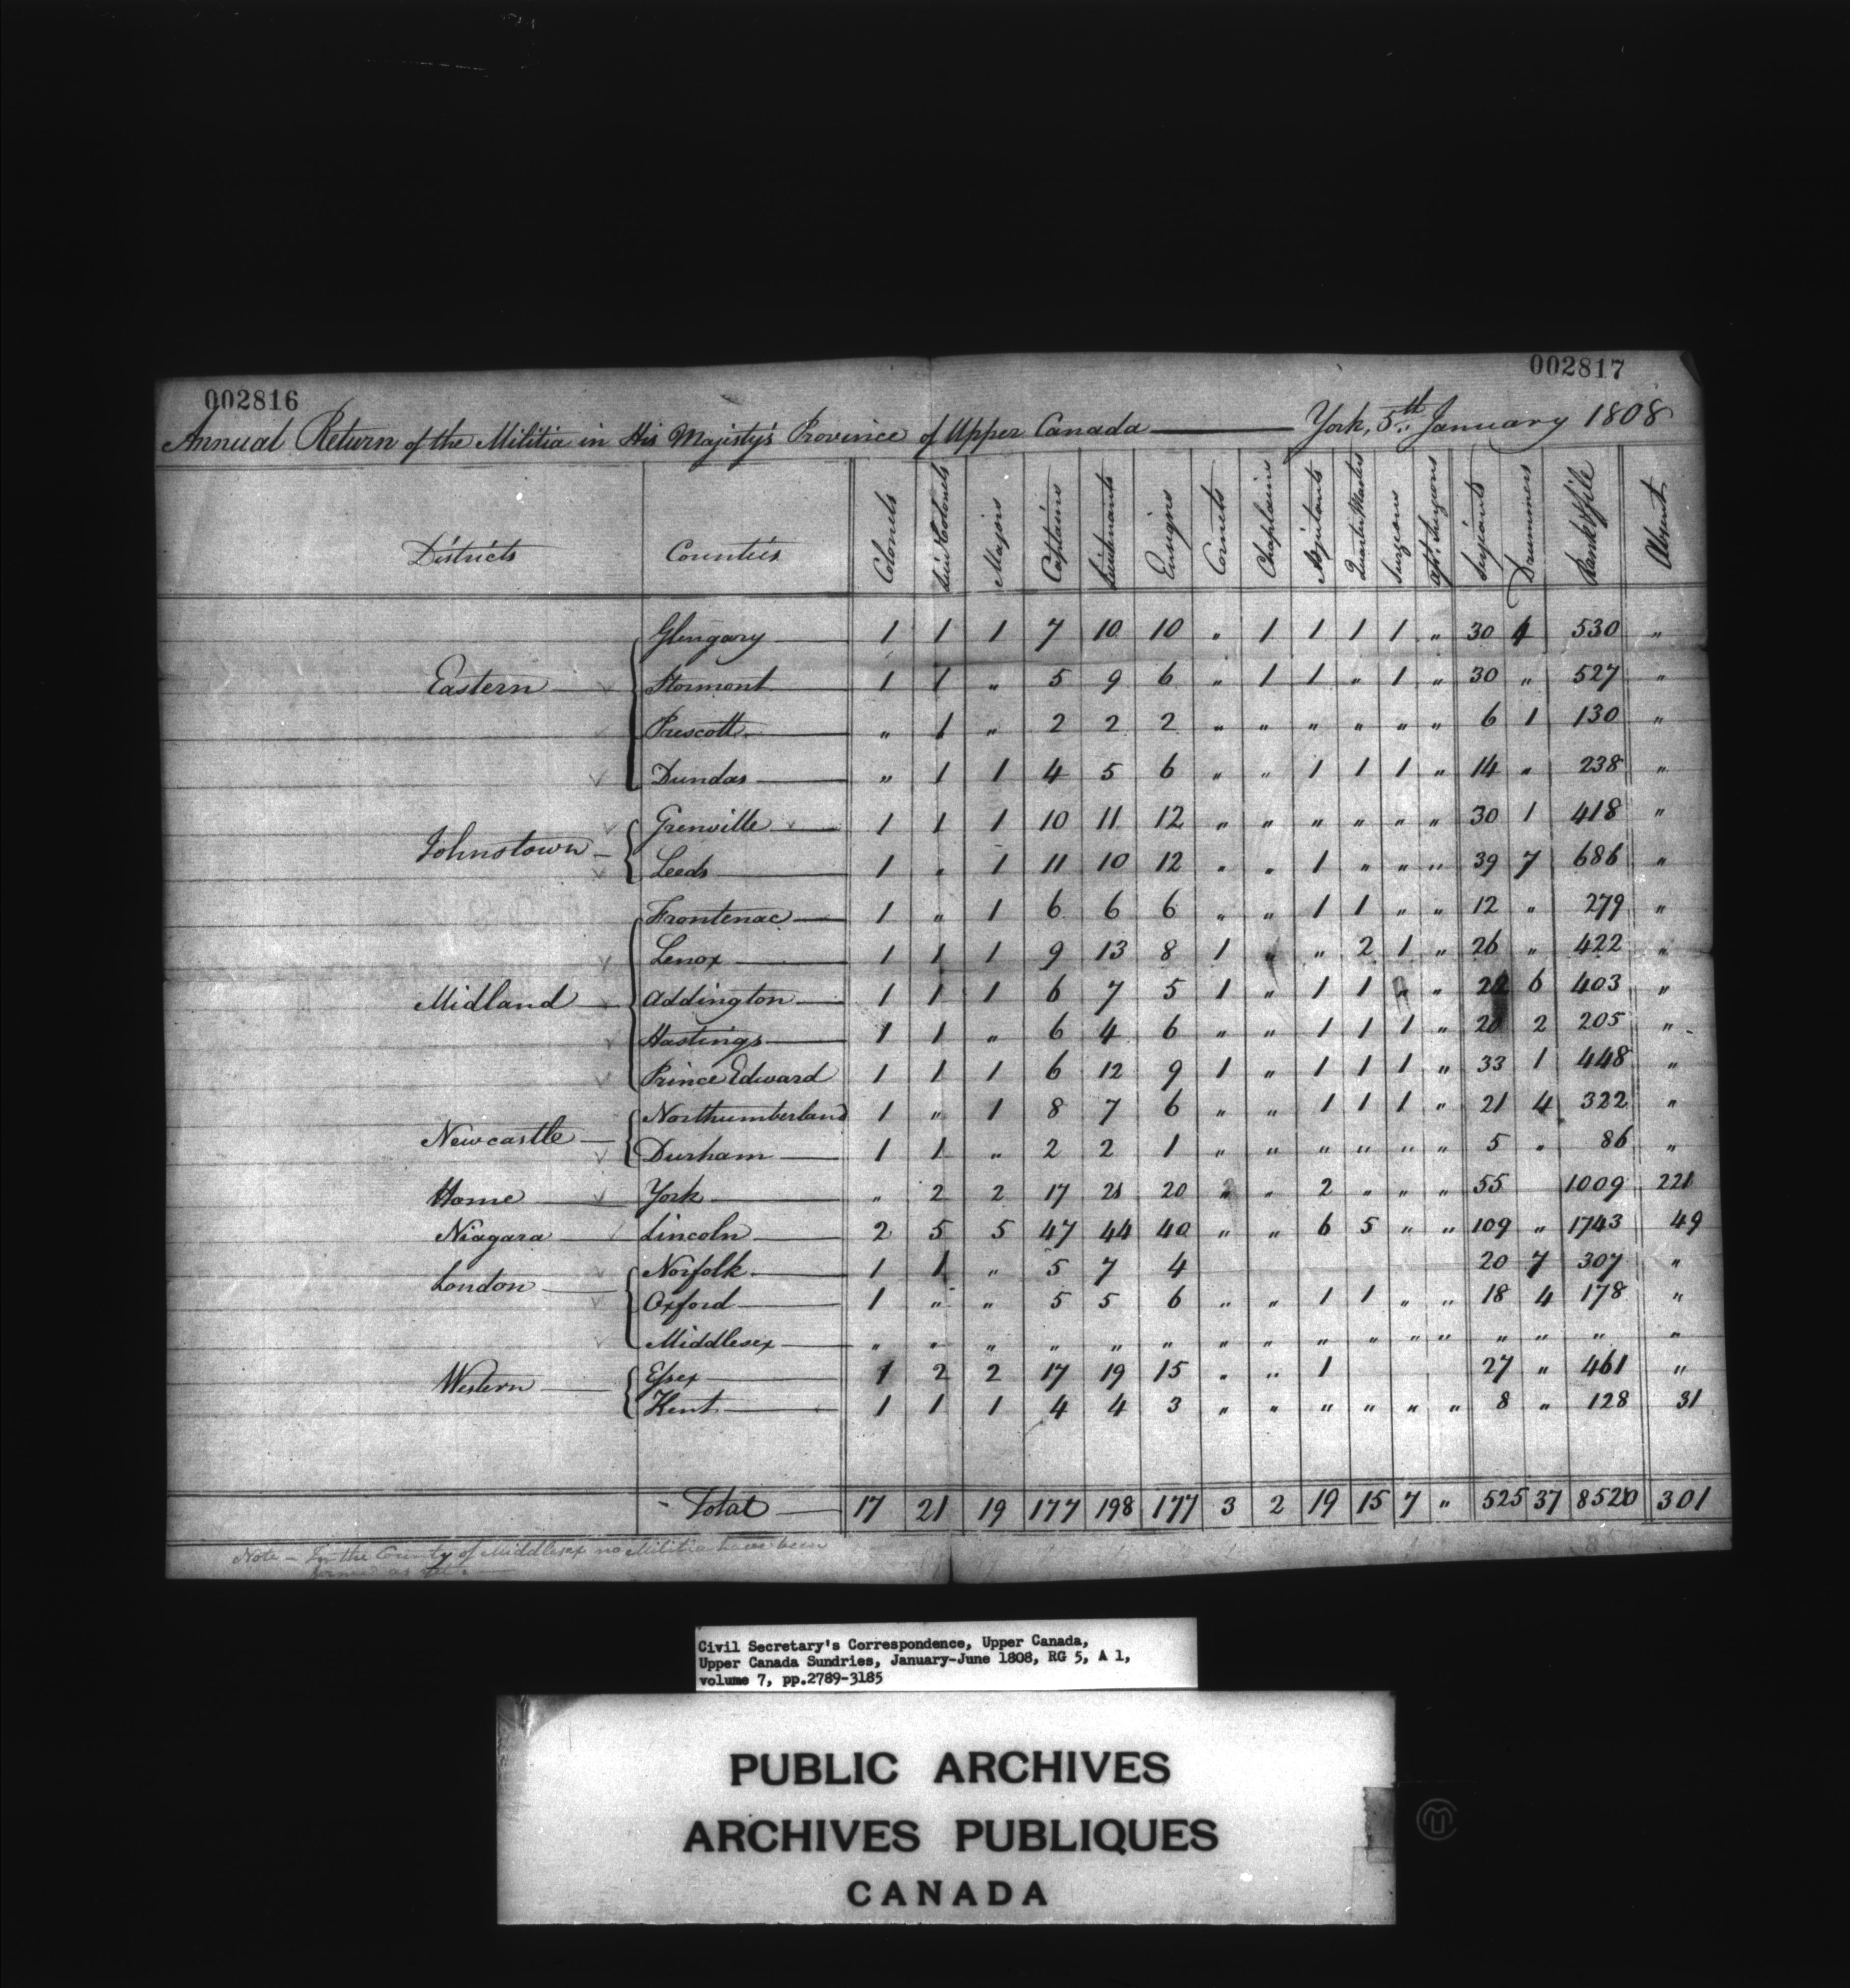 002816
002817
Annual Return of the Militia in His Majesty's Province of Upper Canada — York, 5th January 1808
Districts Counties Colonels Lieut Colonels Majors Captains Lieutenants Ensigns Cornets Chaplains Adjutants Quarter Masters Surgeons Surgeons Serjeants Drummers Rank & file Absent
Glengary 1 1 1 7 10 10 " 1 1 1 1 " 30 4 530 "
Eastern Stormont 1 1 " 5 9 6 " 1 1 " 1 " 30 " 527 "
Prescott " 1 " 2 2 2 " " " " " " 6 1 130 "
Dundas " 1 1 4 5 6 " " 1 1 1 " 14 " 238 "
Grenville 1 1 1 10 11 12 " " " " " " 30 1 418 "
Johnstown Leeds 1 " 1 11 10 12 " " 1 " " " 39 7 686 "
Frontenac 1 " 1 6 6 6 " " 1 1 " " 12 " 279 "
Lenox 1 1 1 9 13 8 1 " " 2 1 " 26 " 422 "
Midland Addington 1 1 1 6 7 5 1 " 1 1 " " 22 6 403 "
Hastings 1 1 " 6 4 6 " " 1 1 1 " 20 2 205 "
Prince Edward 1 1 1 6 12 9 1 " 1 1 1 " 33 1 448 "
Northumberland 1 " 1 8 7 6 " " 1 1 1 " 21 4 322 "
Newcastle Durham 1 1 " 2 2 1 " " " " " " 5 " 86 "
Home York " 2 2 17 21 20 " " 2 " " " 55 1009 221
Niagara Lincoln 2 5 5 47 44 40 " " 6 5 " " 109 " 1743 49
Norfolk 1 1 " 5 7 4 20 7 307 "
London Oxford 1 " " 5 5 6 " " 1 1 " " 18 4 178 "
Middlesex " " " " " " " " " " " " " " " "
Western Essex 1 2 2 17 19 15 " " 1 27 " 461 "
Kent 1 1 1 4 4 3 " " " " " " 8 " 128 31
Total 17 21 19 177 198 177 3 2 19 15 7 " 525 37 8520 301
Note – In the County of Middlesex no Militia have been
formed as yet. —
Civil Secretary's Correspondence, Upper Canada,
Upper Canada Sundries, January-June 1808, RG 5, A 1,
volume 7, pp.2789-3185
PUBLIC ARCHIVES
ARCHIVES PUBLIQUES
CANADA